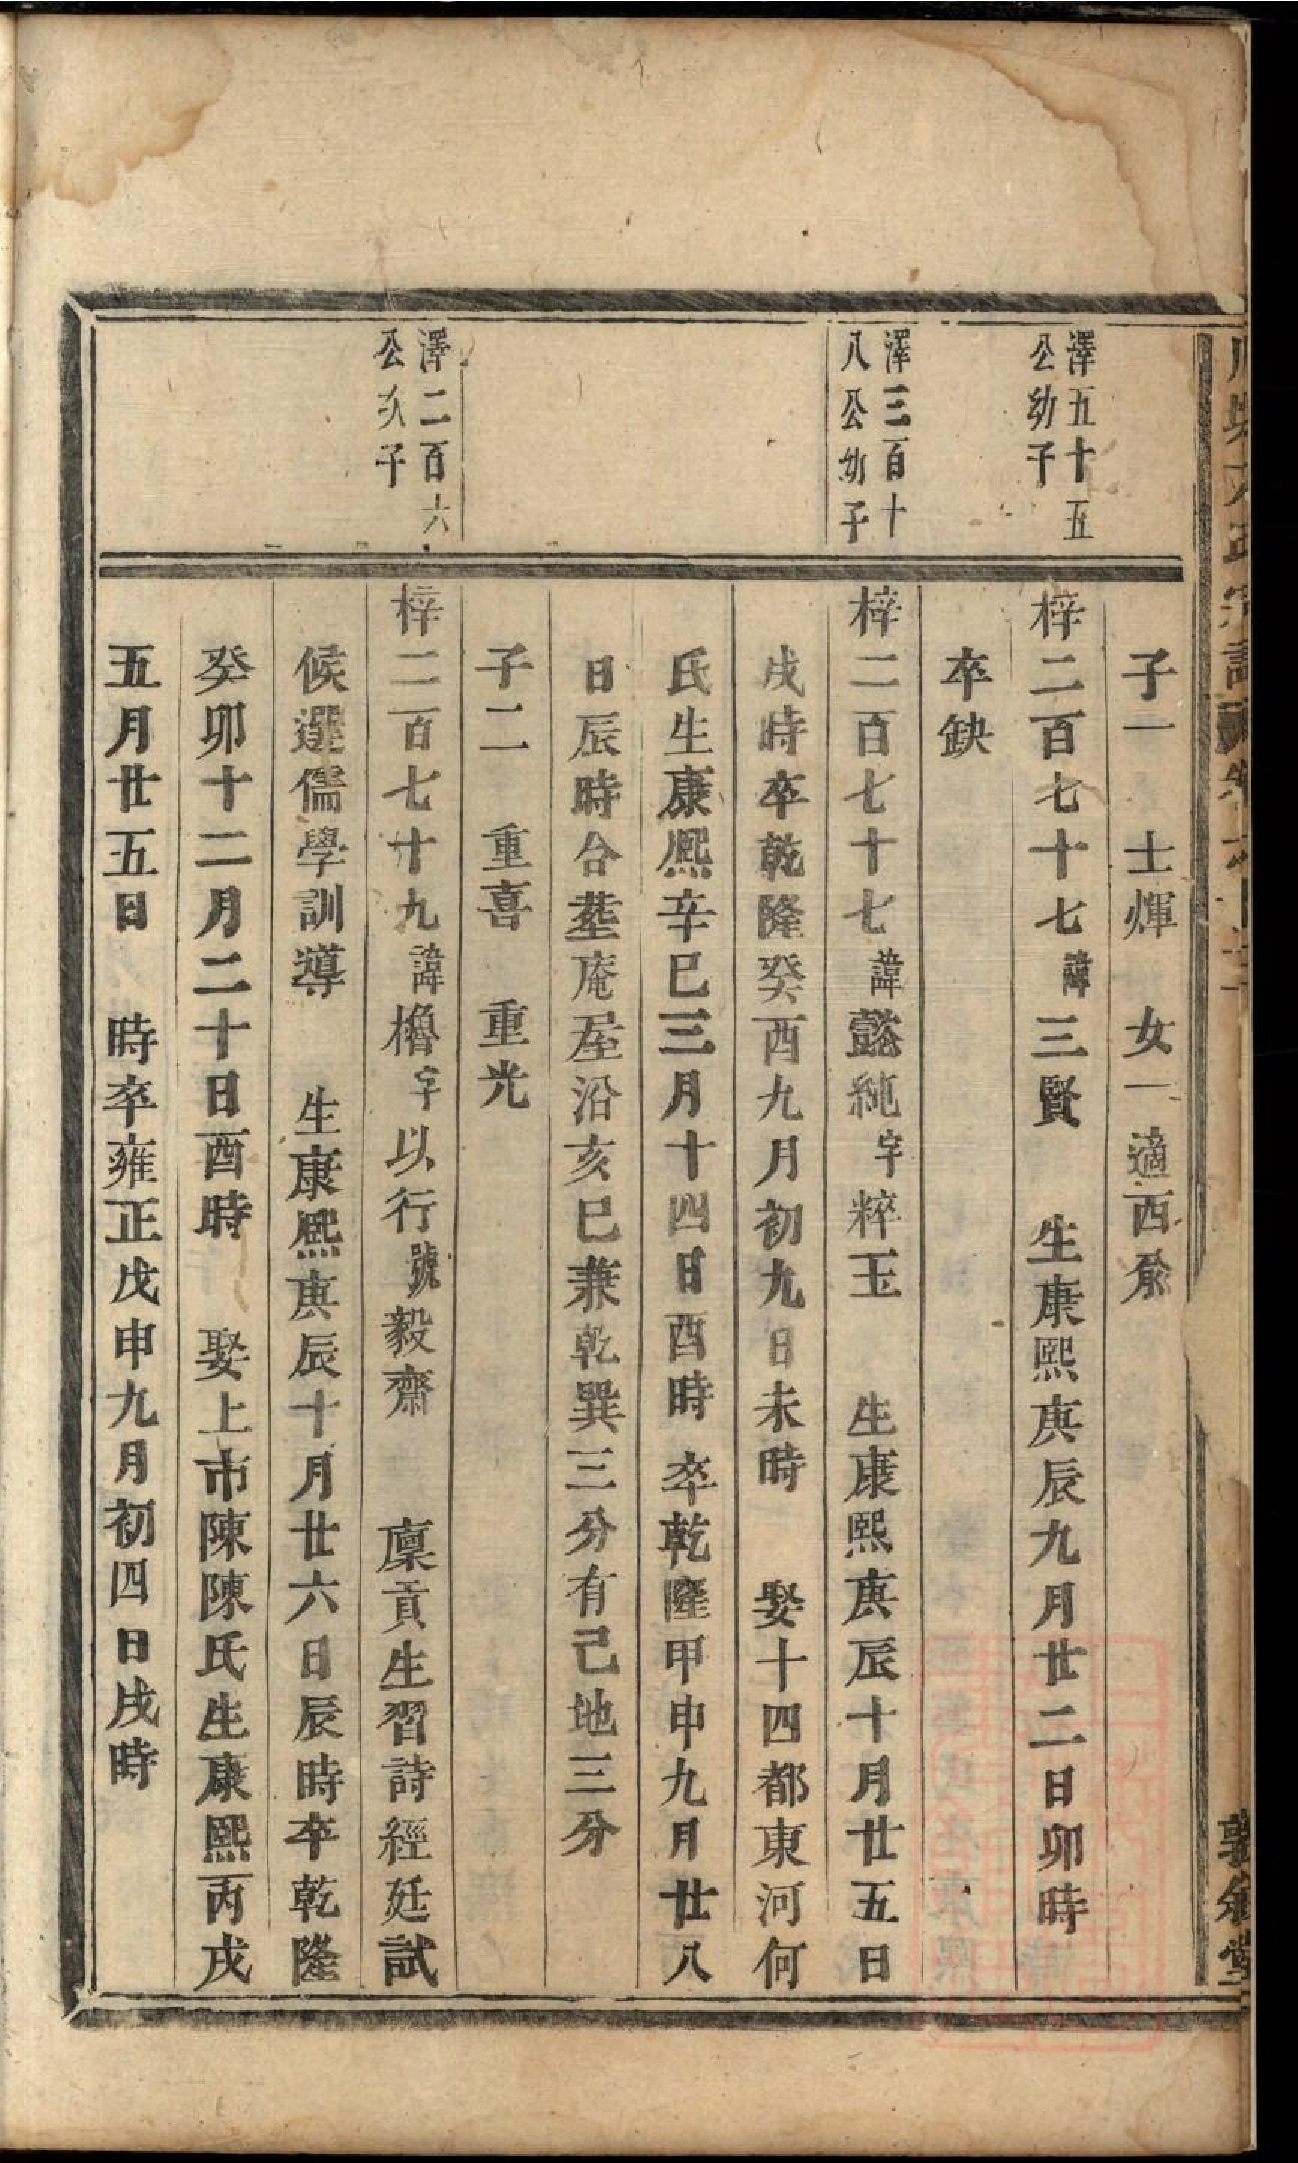 子一 士煇 女一適西兪
澤五十五
公幼子
梓二百七十七諱三賢 生康熙庚辰九月廿二日卯時
卒缺
澤三百十
八公幼子
梓二百七十七諱懿純字粹玉 生康熙庚辰十月廿五日
戌時卒乾隆癸酉九月初九日未時 娶十四都東河何
氏生康熙辛巳三月十四日酉時 卒乾隆甲申九月廿八
日辰時合塟庵屋沿亥巳兼乾巽三分有己地三分
子二 重喜 重光
澤二百六
公次子
梓二百七十九諱櫓字以行號毅齋 廩貢生習詩經廷試
候選儒學訓導 生康熙庚辰十月廿六日辰時卒乾隆
癸卯十二月二十日酉時 娶上市陳陳氏生康熙丙戌
五月廿五日 時卒雍正戊申九月初四日戌時